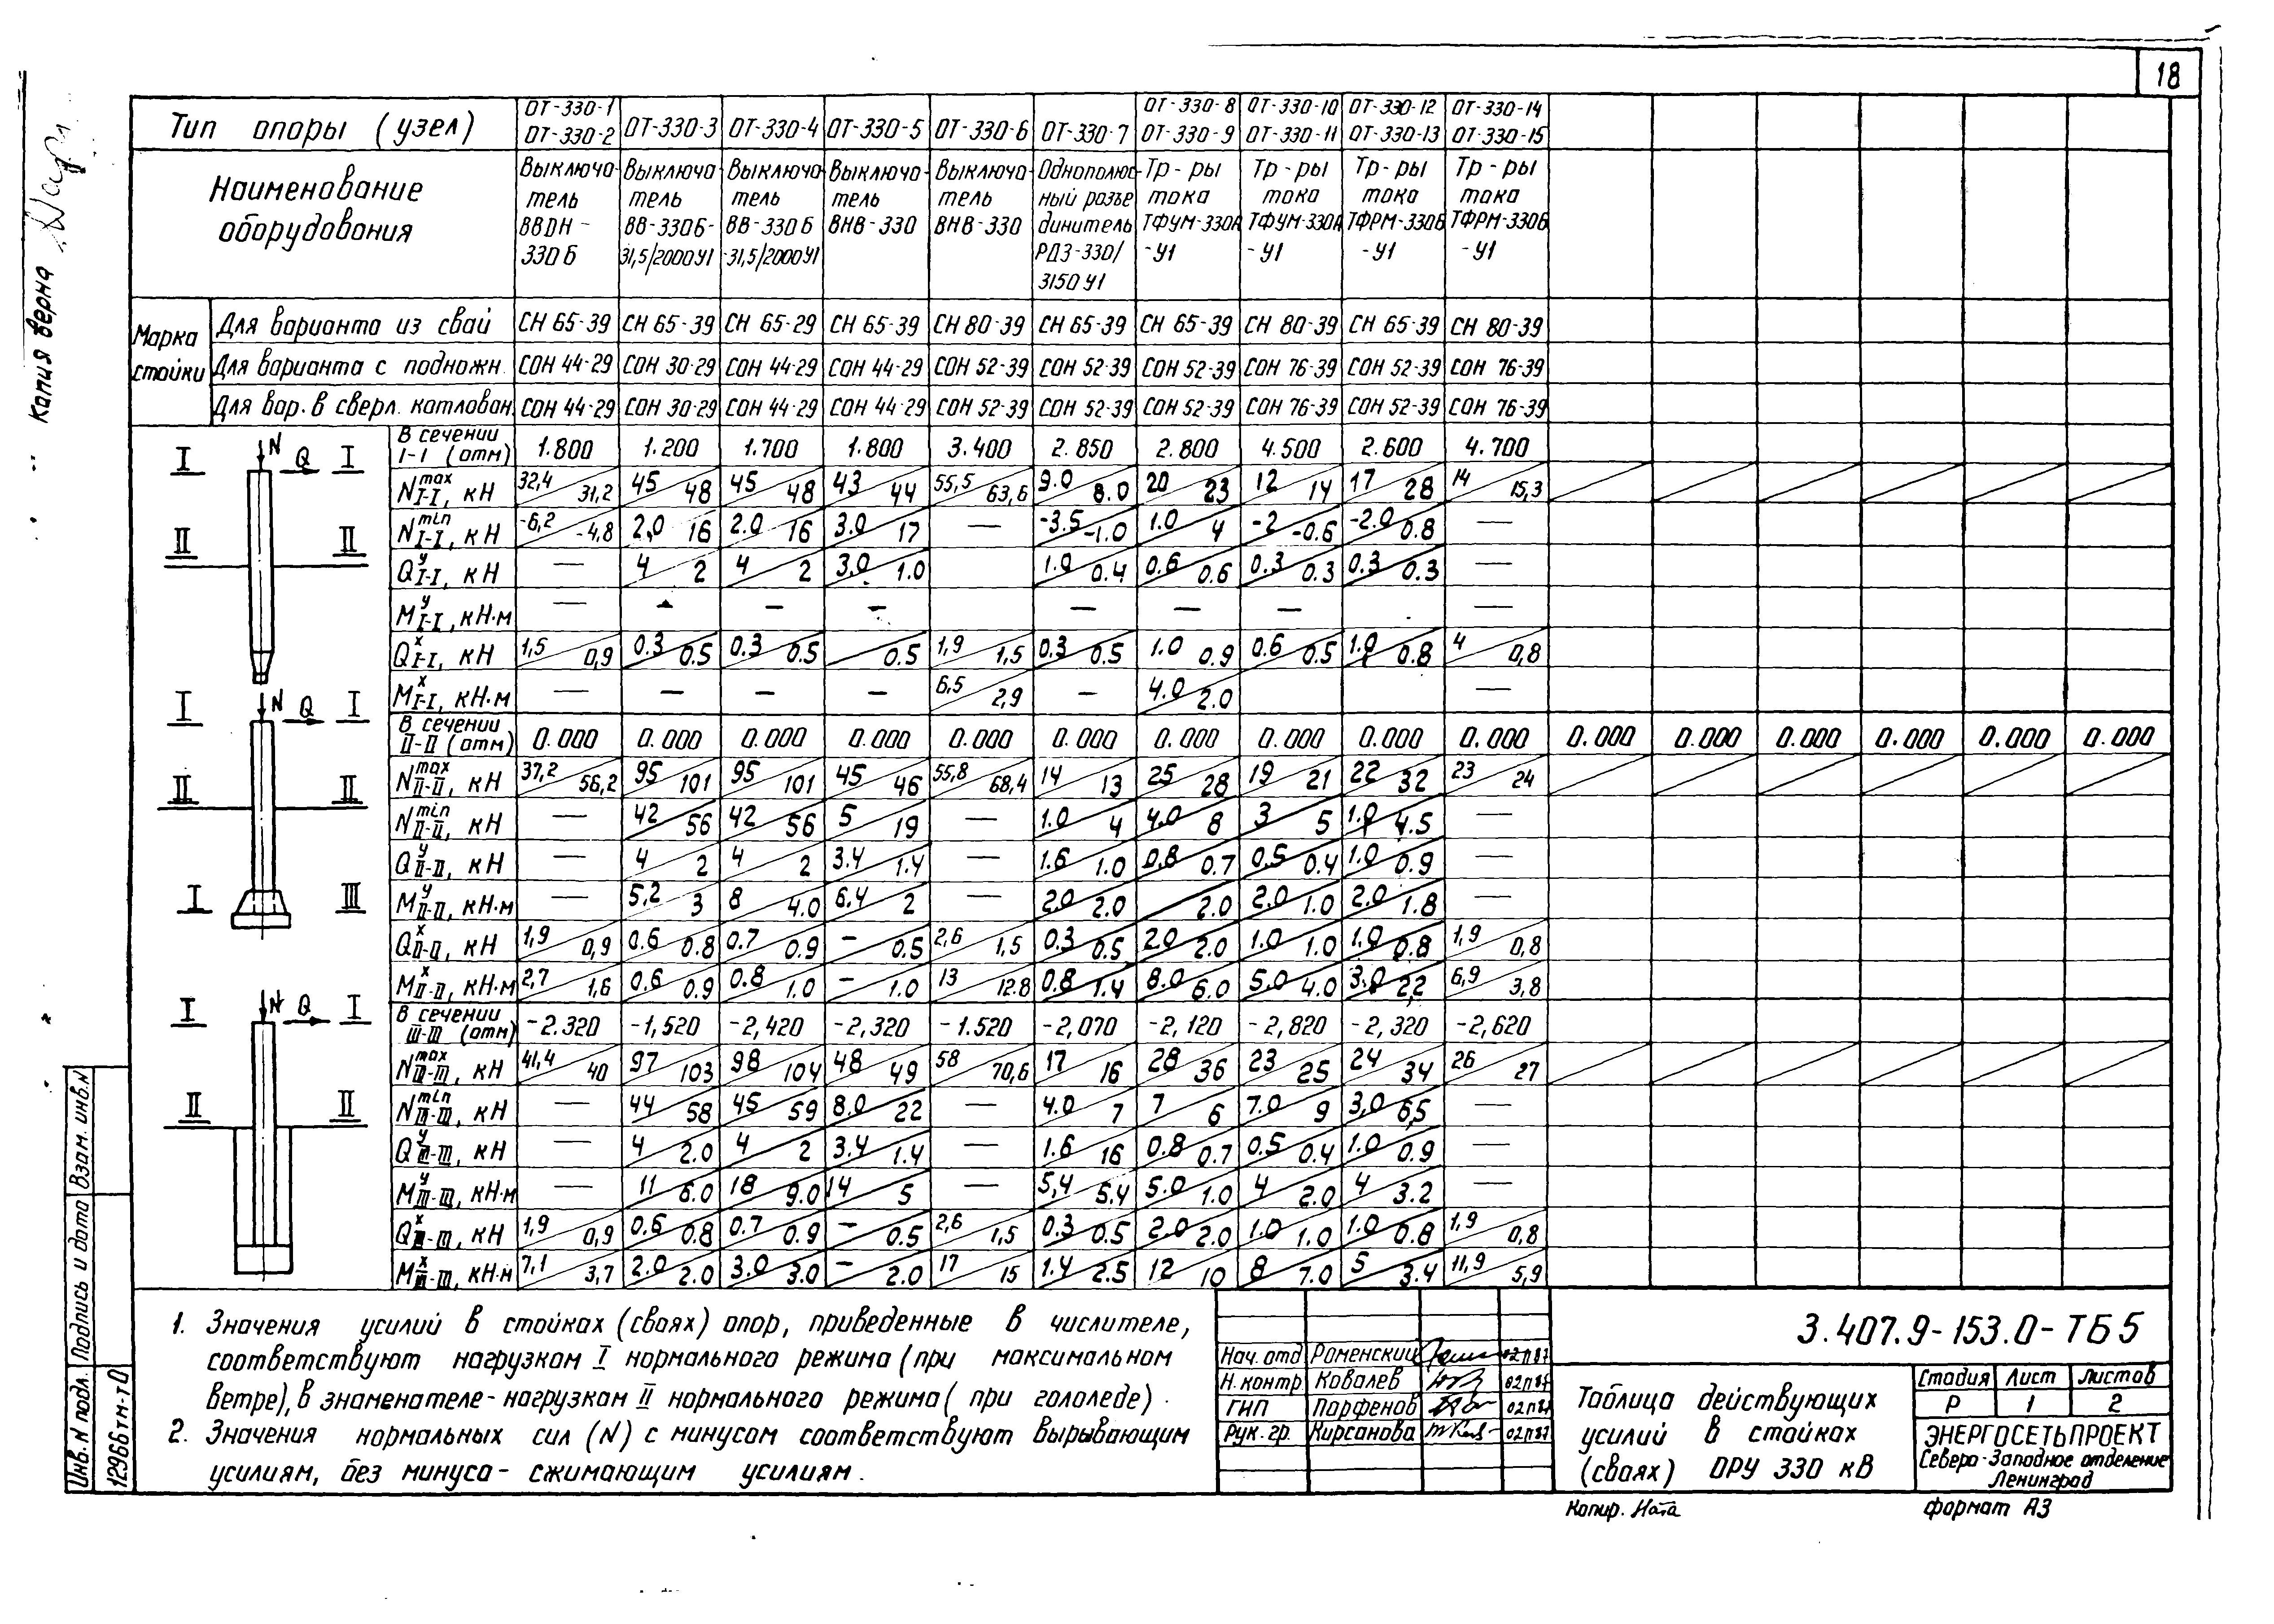 18
Копия верна
Тип опоры (узел) | ОТ-330-1 ОТ-330-2 | ОТ-330-3 | ОТ-330-4 | ОТ-330-5 | ОТ-330-6 | ОТ-330-7 | ОТ-330-8 ОТ-330-9 | ОТ-330-10 ОТ-330-11 | ОТ-330-12 ОТ-330-13 | ОТ-330-14 ОТ-330-15
Наименование оборудования | Выключатель ВВDН-330Б | Выключатель ВВ-330Б-31,5/2000У1 | Выключатель ВВ-330Б-31,5/2000У1 | Выключатель ВНВ-330 | Выключатель ВНВ-330 | Однополюсный разъединитель РДЗ-330/3150У1 | Тр-ры тока ТФУМ-330А-У1 | Тр-ры тока ТФУМ-330А-У1 | Тр-ры тока ТФРМ-330Б-У1 | Тр-ры тока ТФРМ-330Б-У1
Марка стойки
Для варианта из свай | СН 65-39 | СН 65-39 | СН 65-29 | СН 65-39 | СН 80-39 | СН 65-39 | СН 65-39 | СН 80-39 | СН 65-39 | СН 80-39
Для варианта с подножн. | СОН 44-29 | СОН 30-29 | СОН 44-29 | СОН 44-29 | СОН 52-39 | СОН 52-39 | СОН 52-39 | СОН 76-39 | СОН 52-39 | СОН 76-39
Для вар. в сверл. котлован | СОН 44-29 | СОН 30-29 | СОН 44-29 | СОН 44-29 | СОН 52-39 | СОН 52-39 | СОН 52-39 | СОН 76-39 | СОН 52-39 | СОН 76-39
В сечении I-I (отм) | 1.800 | 1.200 | 1.700 | 1.800 | 3.400 | 2.850 | 2.800 | 4.500 | 2.600 | 4.700
N max I-I, кН | 32,4/31,2 | 45/48 | 45/48 | 43/44 | 55,5/63,6 | 9.0/8.0 | 20/23 | 12/14 | 17/28 | 14/15,3
N min I-I, кН | -6,2/-4,8 | 2,0/16 | 2.0/16 | 3.0/17 | — | -3.5/-1.0 | 1.0/4 | -2/-0.6 | -2.0/0.8 | —
Q у I-I, кН | — | 4/2 | 4/2 | 3.0/1.0 | | 1.0/0.4 | 0.6/0.6 | 0.3/0.3 | 0.3/0.3 | —
M у I-I, кН·м | — | — | — | — | | — | — | — | | —
Q х I-I, кН | 1,5/0,9 | 0.3/0.5 | 0.3/0.5 | /0.5 | 1,9/1,5 | 0.3/0.5 | 1.0 0.9 | 0.6/0.5 | 1.0/0.8 | 4/0,8
M х I-I, кН·м | — | — | — | — | 6,5/2,9 | — | 4.0/2.0 | | | —
В сечении II-II (отм) | 0.000 | 0.000 | 0.000 | 0.000 | 0.000 | 0.000 | 0.000 | 0.000 | 0.000 | 0.000 | 0.000 | 0.000 | 0.000 | 0.000 | 0.000 | 0.000
N max II-II, кН | 37,2/56,2 | 95/101 | 95/101 | 45/46 | 55,8/68,4 | 14/13 | 25/28 | 19/21 | 22/32 | 23/24
N min II-II, кН | — | 42/56 | 42/56 | 5/19 | — | 1.0/4 | 4.0/8 | 3/5 | 1.0/4.5 | —
Q у II-II, кН | — | 4/2 | 4/2 | 3.4/1.4 | — | 1.6/1.0 | 0.8/0.7 | 0.5/0.4 | 1.0/0.9 | —
M у II-II, кН·м | — | 5,2/3 | 8/4.0 | 6.4/2 | — | 2.0/2.0 | /2.0 | 2.0/1.0 | 2.0/1.8 | —
Q х II-II, кН | 1,9/0,9 | 0.6/0.8 | 0.7/0.9 | —/0.5 | 2,6/1,5 | 0.3/0.5 | 2.0/2.0 | 1.0/1.0 | 1.0/0.8 | 1,9/0,8
M х II-II, кН·м | 2,7/1,6 | 0.6/0.9 | 0.8/1.0 | —/1.0 | 13/12.8 | 0.8/1.4 | 8.0/6.0 | 5.0/4.0 | 3.0/2,2 | 6,9/3,8
В сечении III-III (отм) | -2.320 | -1,520 | -2,420 | -2,320 | -1.520 | -2,070 | -2,120 | -2,820 | -2,320 | -2,620
N max III-III, кН | 41,4/40 | 97/103 | 98/104 | 48/49 | 58/70,6 | 17/16 | 28/36 | 23/25 | 24/34 | 26/27
N min III-III, кН | — | 44/58 | 45/59 | 8.0/22 | — | 4.0/7 | 7/6 | 7.0/9 | 3,0/6,5 | —
Q у III-III, кН | — | 4/2.0 | 4/2 | 3.4/1.4 | — | 1.6/16 | 0.8/0.7 | 0.5/0.4 | 1.0/0.9 | —
M у III-III, кН·м | — | 11/6.0 | 18/9.0 | 14/5 | — | 5,4/5.4 | 5.0/1.0 | 4/2.0 | 4/3.2 | —
Q х III-III, кН | 1,9/0,9 | 0.6/0.8 | 0.7/0.9 | —/0.5 | 2,6/1,5 | 0.3/0.5 | 2.0/2.0 | 1.0/1.0 | 1.0/0.8 | 1,9/0,8
M х III-III, кН·м | 7,1/3,7 | 2.0/2.0 | 3.0/3.0 | —/2.0 | 17/15 | 1.4/2.5 | 12/10 | 8/7.0 | 5/3.4 | 11,9/5,9
I N Q I
II II
I N Q I
II II
I III
I N Q I
II II
1. Значения усилий в стойках (сваях) опор, приведенные в числителе,
соответствуют нагрузкам I нормального режима (при максимальном
ветре), в знаменателе - нагрузкам II нормального режима (при гололеде).
2. Значения нормальных сил (N) с минусом соответствуют вырывающим
усилиям, без минуса - сжимающим усилиям.
Нач. отд Роменский 02.11.87
Н. контр. Ковалев 02.11.87
ГИП Парфенов 02.11.87
Рук. гр. Кирсанова 02.11.87
3.407.9-153.0-ТБ5
Таблица действующих
усилий в стойках
(сваях) ОРУ 330 кВ
Стадия Лист Листов
Р 1 2
ЭНЕРГОСЕТЬПРОЕКТ
Северо-Западное отделение
Ленинград
Копир. Ната
формат А3
Инв. N подл. Подпись и дата Взам. инв. N
12966тм-т0